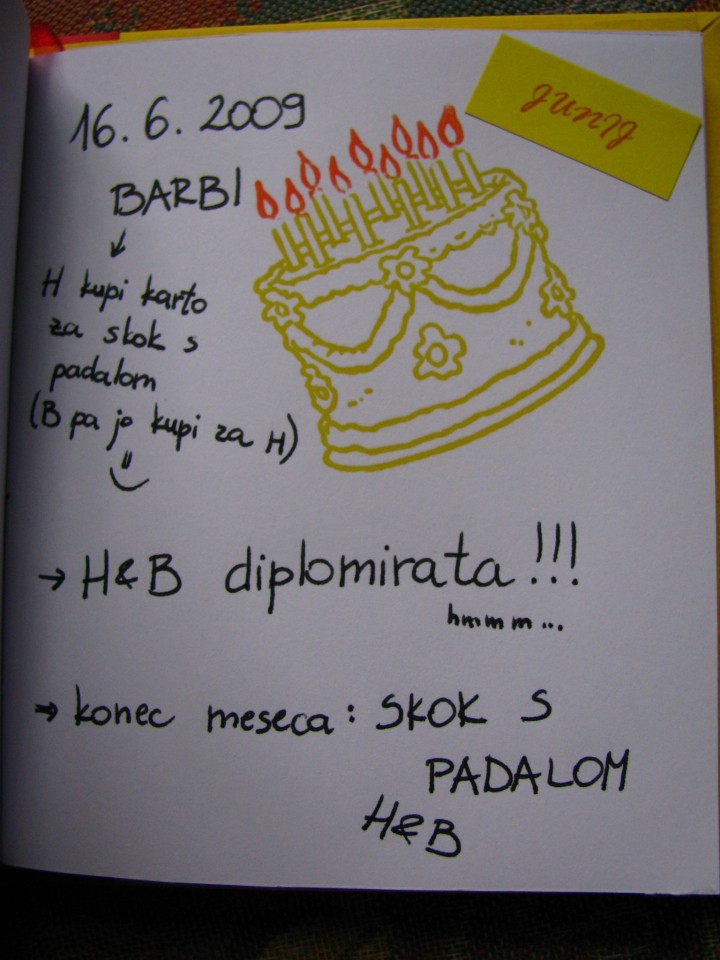 JUNIJ
16. 6. 2009
BARBI
H kupi karto
za skok s
padalom
(B pa jo kupi za H)
→ H&B diplomirata!!!
hmmm...
→ konec meseca: SKOK S
PADALOM
H&B